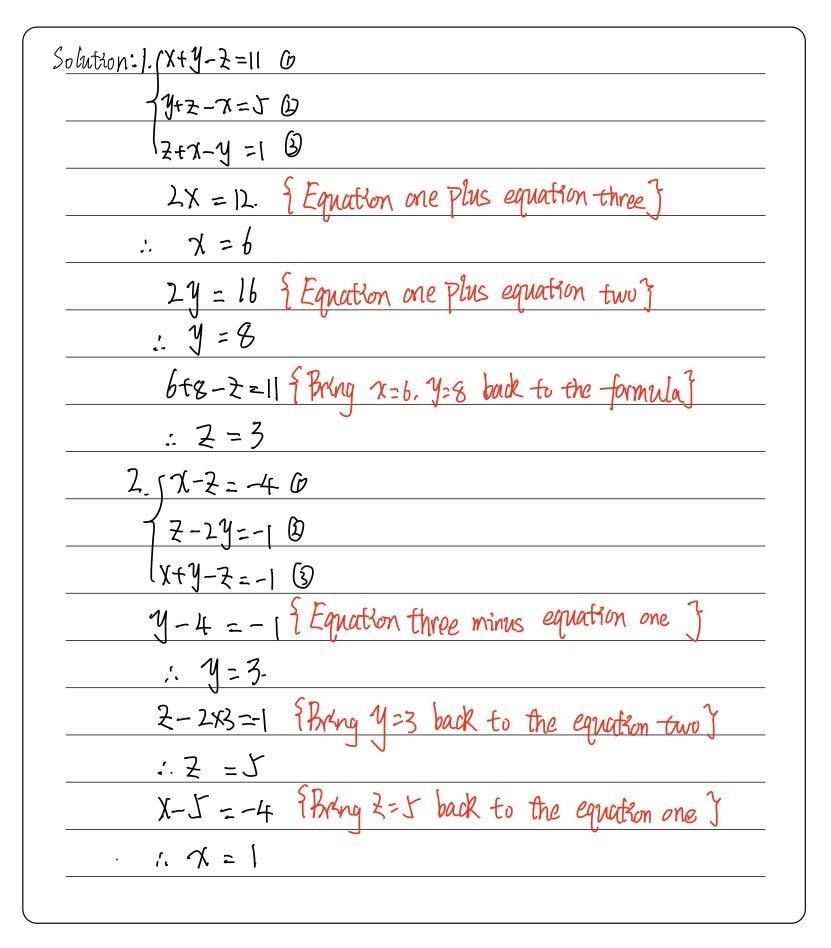 Solution: 1. x+y-z=11 ①
y+z-x=5 ②
z+x-y=1 ③
2x=12. {Equation one plus equation three}
∴ x=6
2y=16 {Equation one plus equation two}
∴ y=8
6+8-z=11 {Bring x=6, y=8 back to the formula}
∴ z=3
2. x-z=-4 ①
z-2y=-1 ②
x+y-z=-1 ③
y-4=-1 {Equation three minus equation one}
∴ y=3.
z-2×3=-1 {Bring y=3 back to the equation two}
∴ z=5
x-5=-4 {Bring z=5 back to the equation one}
∴ x=1